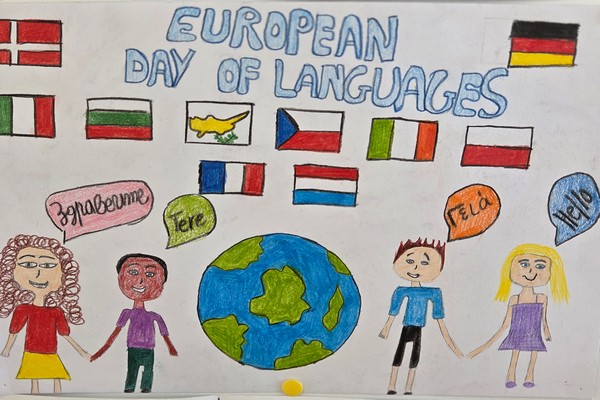 EUROPEAN
DAY OF LANGUAGES
Здравейте
Tere
Γειά
Hello